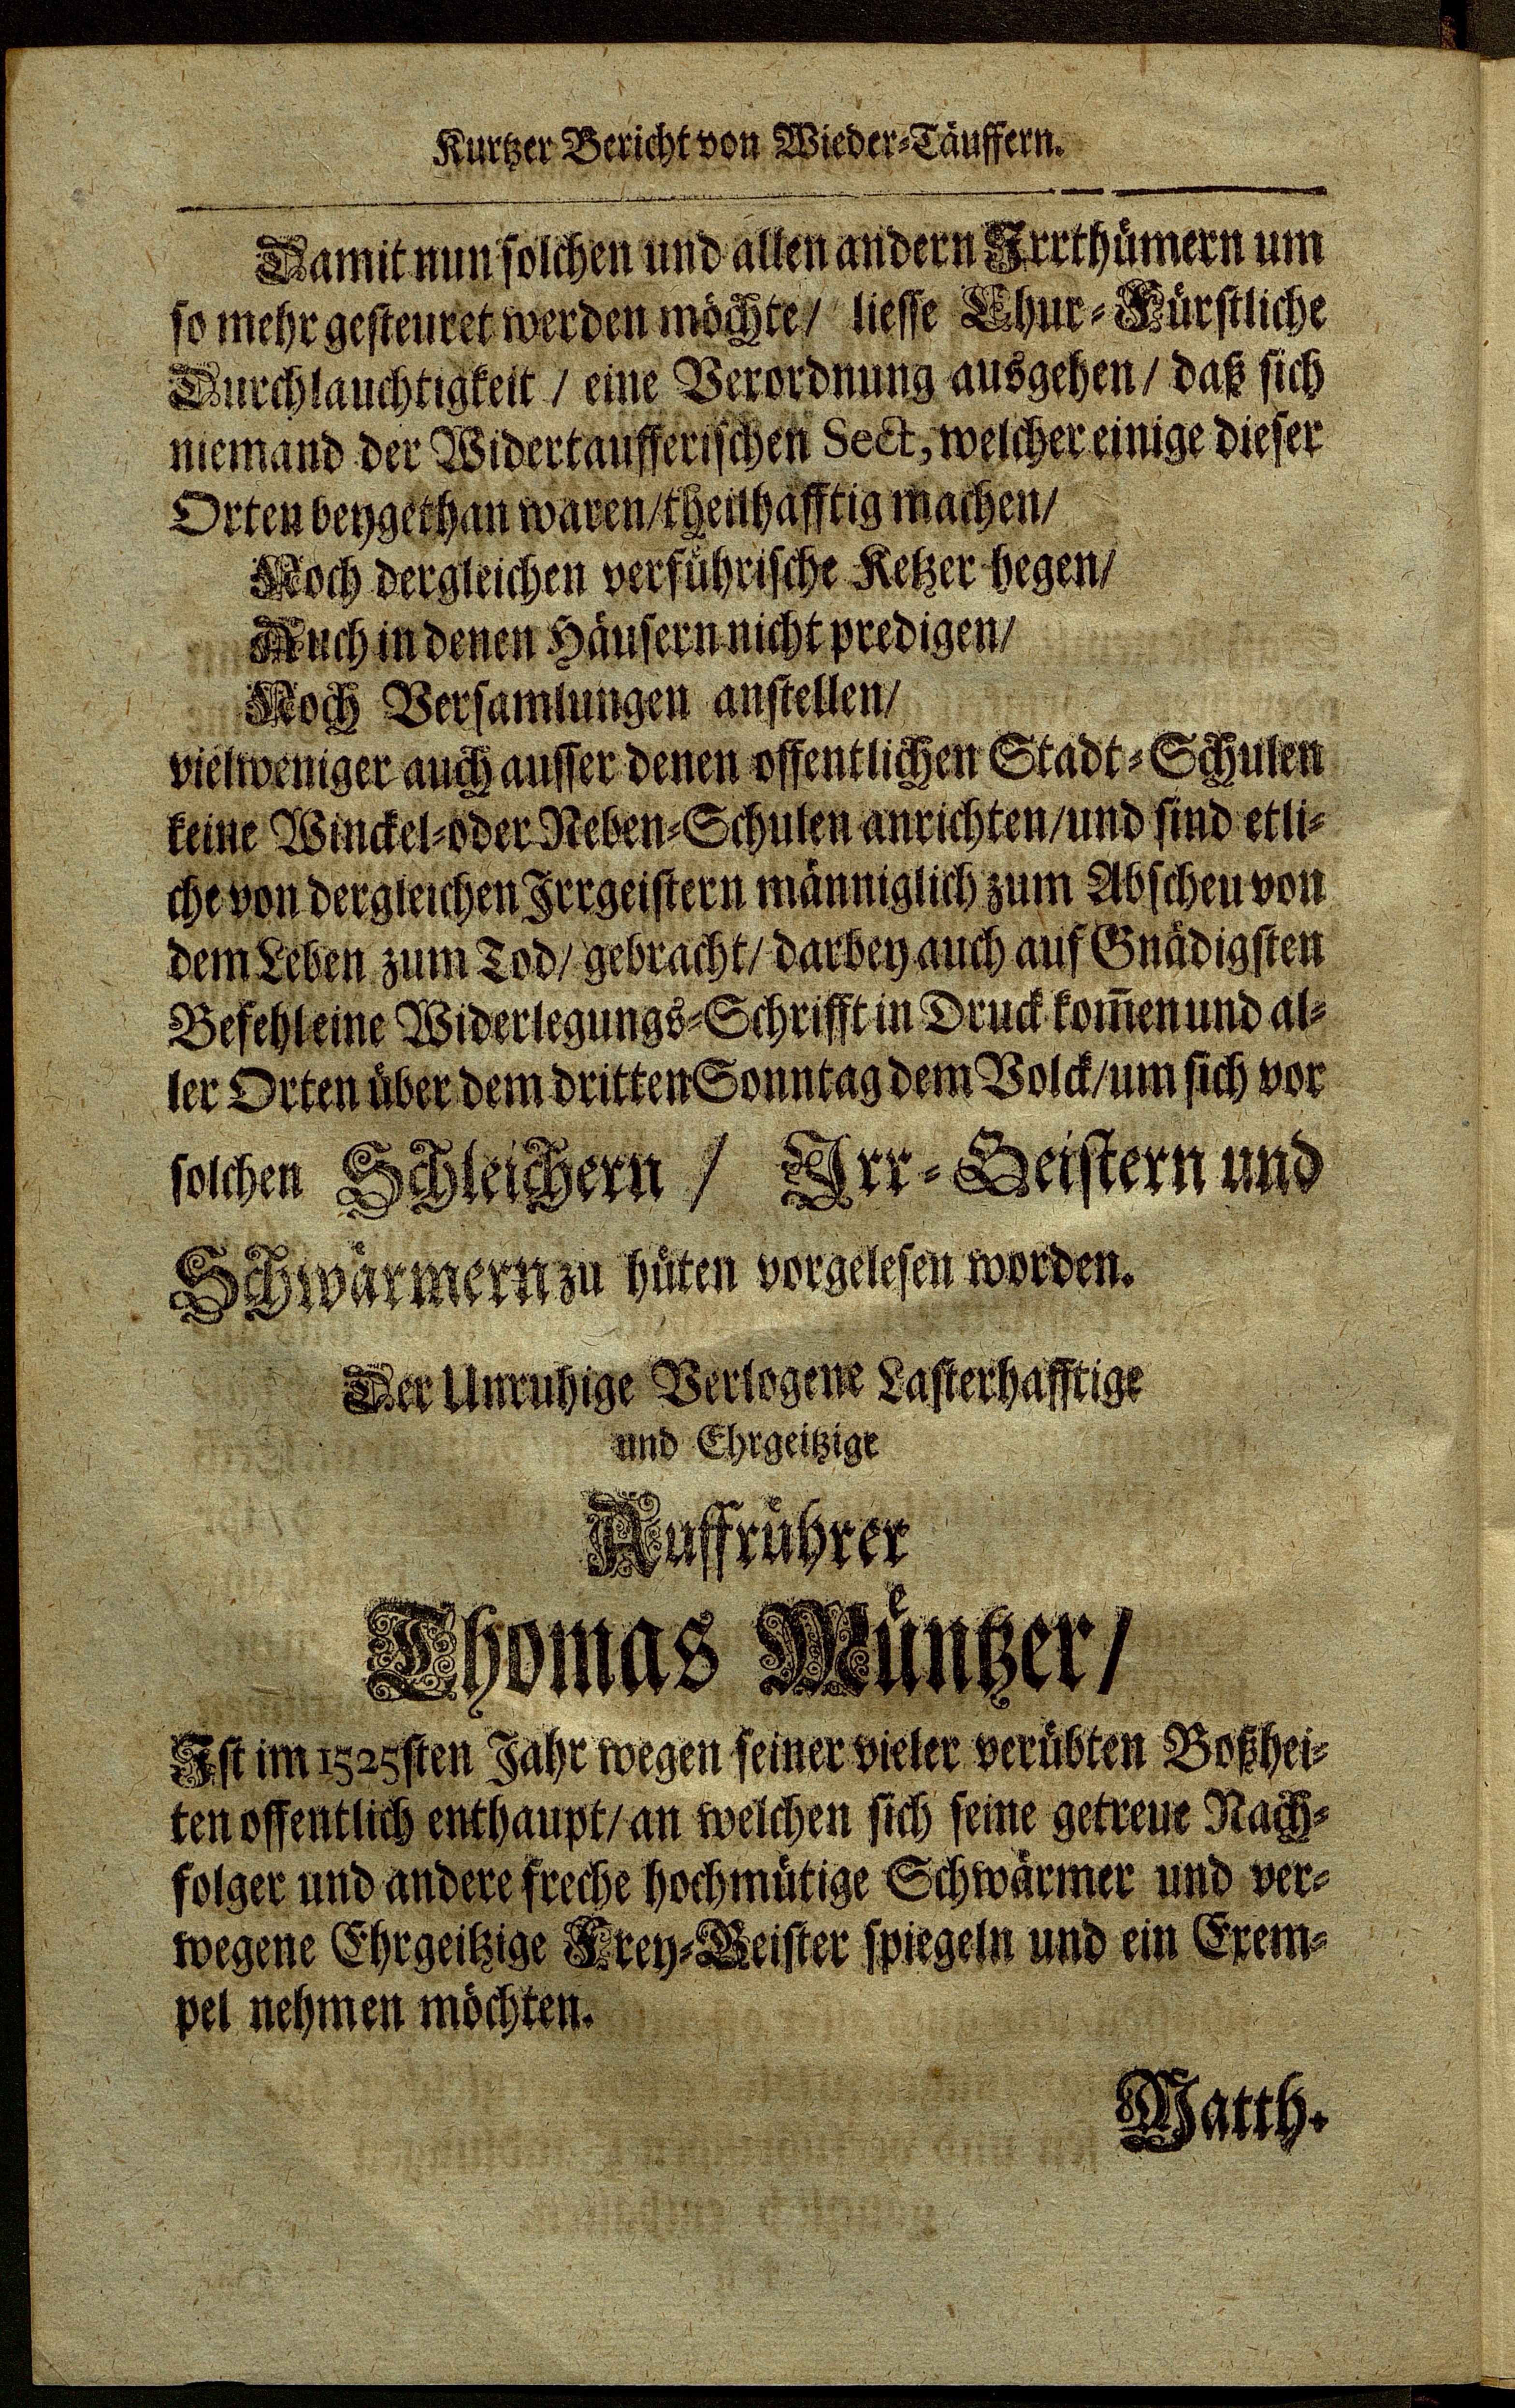 Kurtzer Bericht von Wieder-Täuffern.
Damit nun solchen und allen andern Irrthümern um
so mehr gesteuret werden möchte/ liesse Chur-Fürstliche
Durchlauchtigkeit / eine Verordnung ausgehen/ daß sich
niemand der Widertaufferischen Sect, welcher einige dieser
Orten beygethan waren/theilhafftig machen/
Noch dergleichen verführische Ketzer hegen/
Auch in denen Häusern nicht predigen/
Noch Versamlungen anstellen/
vielweniger auch ausser denen offentlichen Stadt-Schulen
keine Winckel-oder Neben-Schulen anrichten/und sind etli-
che von dergleichen Irrgeistern männiglich zum Abscheu von
dem Leben zum Tod/ gebracht/ darbey auch auf Gnädigsten
Befehl eine Widerlegungs-Schrifft in Druck kom̃en und al-
ler Orten über dem dritten Sonntag dem Volck/um sich vor
solchen Schleichern / Irr-Geistern und
Schwärmern zu hüten vorgelesen worden.
Der Unruhige Verlogene Lasterhafftige
und Ehrgeitzige
Auffrührer
Thomas Müntzer/
Ist im 1525sten Jahr wegen seiner vieler verübten Boßhei-
ten offentlich enthaupt/ an welchen sich seine getreue Nach-
folger und andere freche hochmütige Schwärmer und ver-
wegene Ehrgeitzige Frey-Geister spiegeln und ein Exem-
pel nehmen möchten.
Matth.